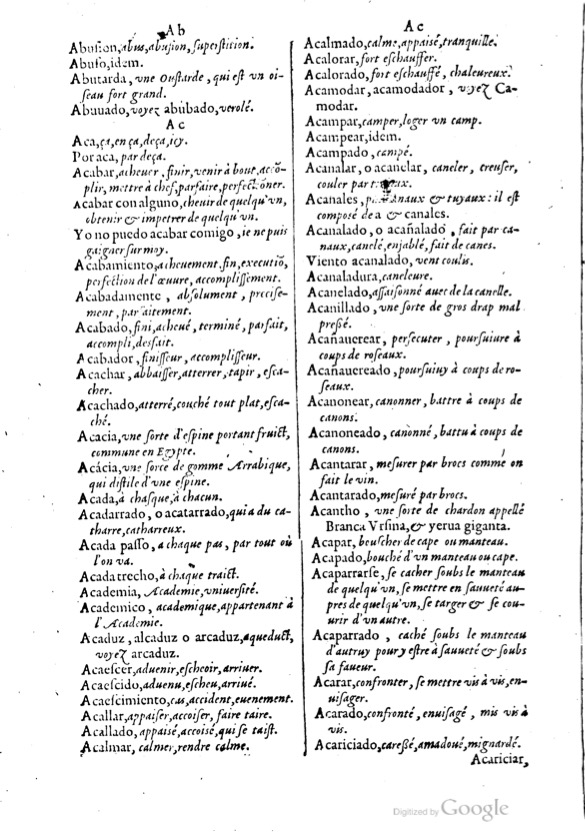 Ab
Abusion, abus, abusion, superstition.
Abuso, idem.
Abutarda, vne Oustarde, qui est vn oi-
seau fort grand.
Abuuado, voyez abubado, verolé.
Ac
Aca, ça, en ça, deça, icy.
Por aca, par deça.
Acabar, acheuer, finir, venir à bout, accõ-
plir, mettre à chef, parfaire, perfectiõner.
Acabar con alguno, cheuir de quelqu'vn,
obtenir & impetrer de quelqu'vn.
Yo no puedo acabar comigo, ie ne puis
gaigner sur moy.
Acabamiento, acheuement, fin, executiõ,
perfection de l'œuure, accomplissement.
Acabadamente, absolument, precise-
ment, parfaitement.
Acabado, fini, acheué, terminé, parfait,
accompli, desfait.
Acabador, finisseur, accomplisseur.
Acachar, abbaisser, atterrer, tapir, esca-
cher.
Acachado, atterré, couché tout plat, esca-
ché.
Acacia, vne sorte d'espine portant fruict,
commune en Egypte.
Acácia, vne sorce de gomme Arrabique,
qui distile d'vne espine.
Acada, à chasque, à chacun.
Acadarrado, o acatarrado, qui a du ca-
tharre, catharreux.
Acada passo, a chaque pas, par tout où
l'on va.
Acada trecho, à chaque traict.
Academia, Academie, vniuersité.
Academico, academique, appartenant à
l'Academie.
Acaduz, alcaduz o arcaduz, aqueduct,
voyez arcaduz.
Acaescer, aduenir, escheoir, arriuer.
Acaescido, aduenu, escheu, arriué.
Acaescimiento, cas, accident, euenement.
Acallar, appaiser, accoiser, faire taire.
Acallado, appaisé, accoisé, qui se taist.
Acalmar, calmer, rendre calme.
Ac
Acalmado, calme, appaisé, tranquille.
Acalorar, fort eschauffer.
Acalorado, fort eschauffé, chaleureux.
Acamodar, acamodador, voyez Ca-
modar.
Acampar, camper, loger vn camp.
Acampear, idem.
Acampado, campé.
Acanalar, o acanelar, caneler, creuser,
couler par
Acanales, & tuyaux: il est
composé de a & canales.
Acanalado, o acañalado, fait par ca-
naux, canelé, enjablé, fait de canes.
Viento acanalado, vent coulis.
Acanaladura, caneleure.
Acanelado, assaisonné auec de la canelle.
Acanillado, vne sorte de gros drap mal
pressé.
Acañauerear, persecuter, poursuiure à
coups de roseaux.
Acañauereado, poursuiuy à coups de ro-
seaux.
Acanonear, canonner, battre à coups de
canons.
Acanoneado, canonné, battu à coups de
canons.
Acantarar, mesurer par brocs comme on
fait le vin.
Acantarado, mesuré par brocs.
Acantho, vne sorte de chardon appellé
Branca Vrsina, & yerua giganta.
Acapar, boucher de cape ou manteau.
Acapado, bouché d'vn manteau ou cape.
Acaparrarse, se cacher soubs le manteau
de quelqu'vn, se mettre en sauueté au-
pres de quelqu'vn, se targer & se cou-
urir d'vn autre.
Acaparrado, caché soubs le manteau
d'autruy pour y estre à sauueté & soubs
sa faueur.
Acarar, confronter, se mettre vis à vis, en-
uisager.
Acarado, confronté, enuisagé, mis vis à
vis.
Acariciado, caressé, amadoué, mignardé.
Acariciar,
Digitized by Google